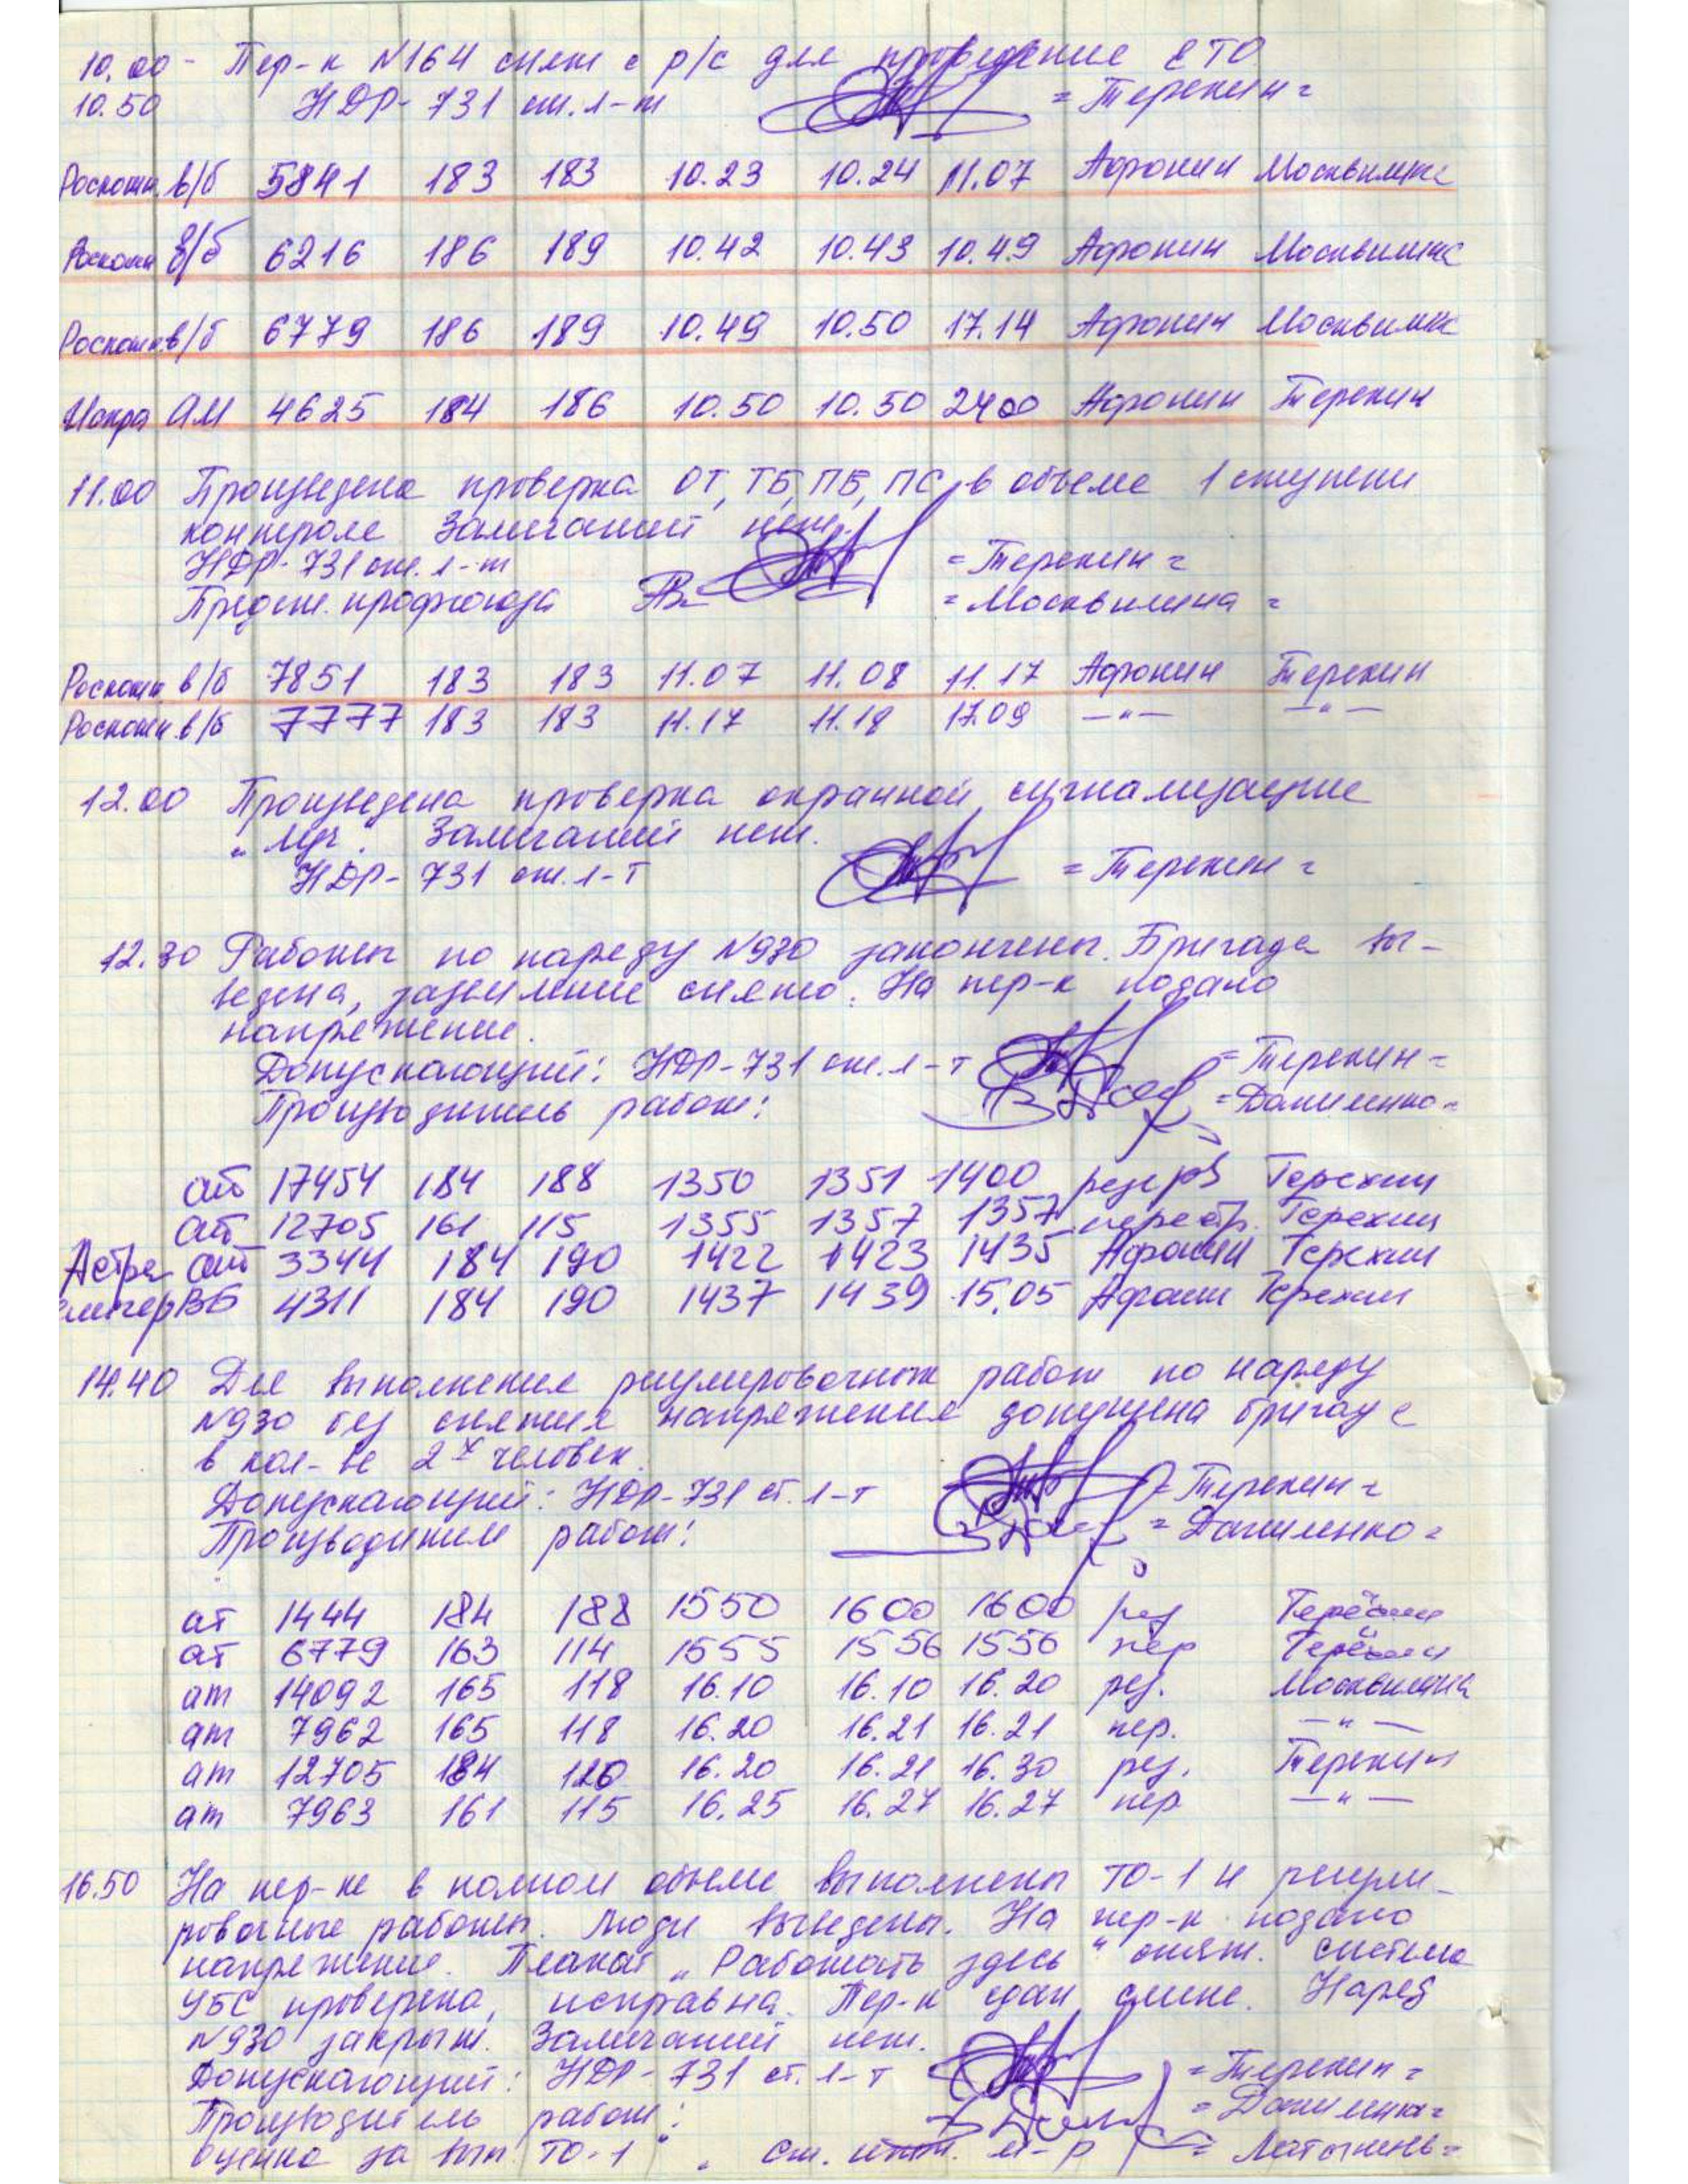 10.00 - Пер-к N164 снят с р/с для проведение ЕТО
10.50 НДР-731 ст. л-т = Терехин =
Роскошн. в/б 5841 183 183 10.23 10.24 11.07 Афронин Москвитина
Роскошн в/б 6216 186 189 10.42 10.43 10.49 Афронин Москвитина
Роскошн в/б 6779 186 189 10.49 10.50 17.14 Афронин Москвитина
Искра АМ 4625 184 186 10.50 10.50 2400 Афронин Терехин
11.00 Произведена проверка ОТ, ТБ, ПБ, ПС, в объеме 1 ступени
контроля Замечаний нет.
НДР-731 ст. л-т = Терехин =
Предст. профсоюза = Москвитина =
Роскошн. в/б 7851 183 183 11.07 11.08 11.17 Афронин Терехин
Роскошн. в/б 7777 183 183 11.17 11.18 17.09 — " — — " —
12.00 Произведена проверка охранной сигнализации
„Луч". Замечаний нет.
НДР-731 ст. л-т = Терехин =
12.30 Работы по наряду N930 закончены. Бригада вы-
ведена, заземление снято. На пер-к подано
напряжение.
Допускающий: НДР-731 ст. л-т = Терехин =
Производитель работ: = Даниленко =
ат 17454 184 188 1350 1351 1400 резерв Терехин
ат 12705 161 115 1355 1357 1357 перестр. Терехин
Астра ат 3344 184 190 1422 1423 1435 Афронин Терехин
ВБ 4311 184 190 1437 1439 15.05 Афронин Терехин
14.40 Для выполнения регулировочных работ по наряду
N930 без снятия напряжения допущена бригада
в кол-ве 2х человек.
Допускающий: НДР-731 ст. л-т = Терехин =
Производитель работ: = Даниленко =
ат 1444 184 188 1550 1600 1600 рез Терёхин
ат 6779 163 114 1555 1556 1556 пер Терёхин
ат 14092 165 118 16.10 16.10 16.20 рез. Москвитина
ат 7962 165 118 16.20 16.21 16.21 пер. — " —
ат 12705 184 120 16.20 16.21 16.30 рез. Терехин
ат 7963 161 115 16.25 16.27 16.27 пер — " —
16.50 На пер-ке в полном объеме выполнены ТО-1 и регули-
ровочные работы. Люди выведены. На пер-к подано
напряжение. Плакат „Работать здесь" снят. Система
УБС проверена, исправна. Пер-к сдан смене. Наряд
N930 закрыт. Замечаний нет.
Допускающий: НДР-731 ст. л-т = Терехин =
Производитель работ: = Даниленко =
Оценка за вып. ТО-1 " . Ст. м-р =